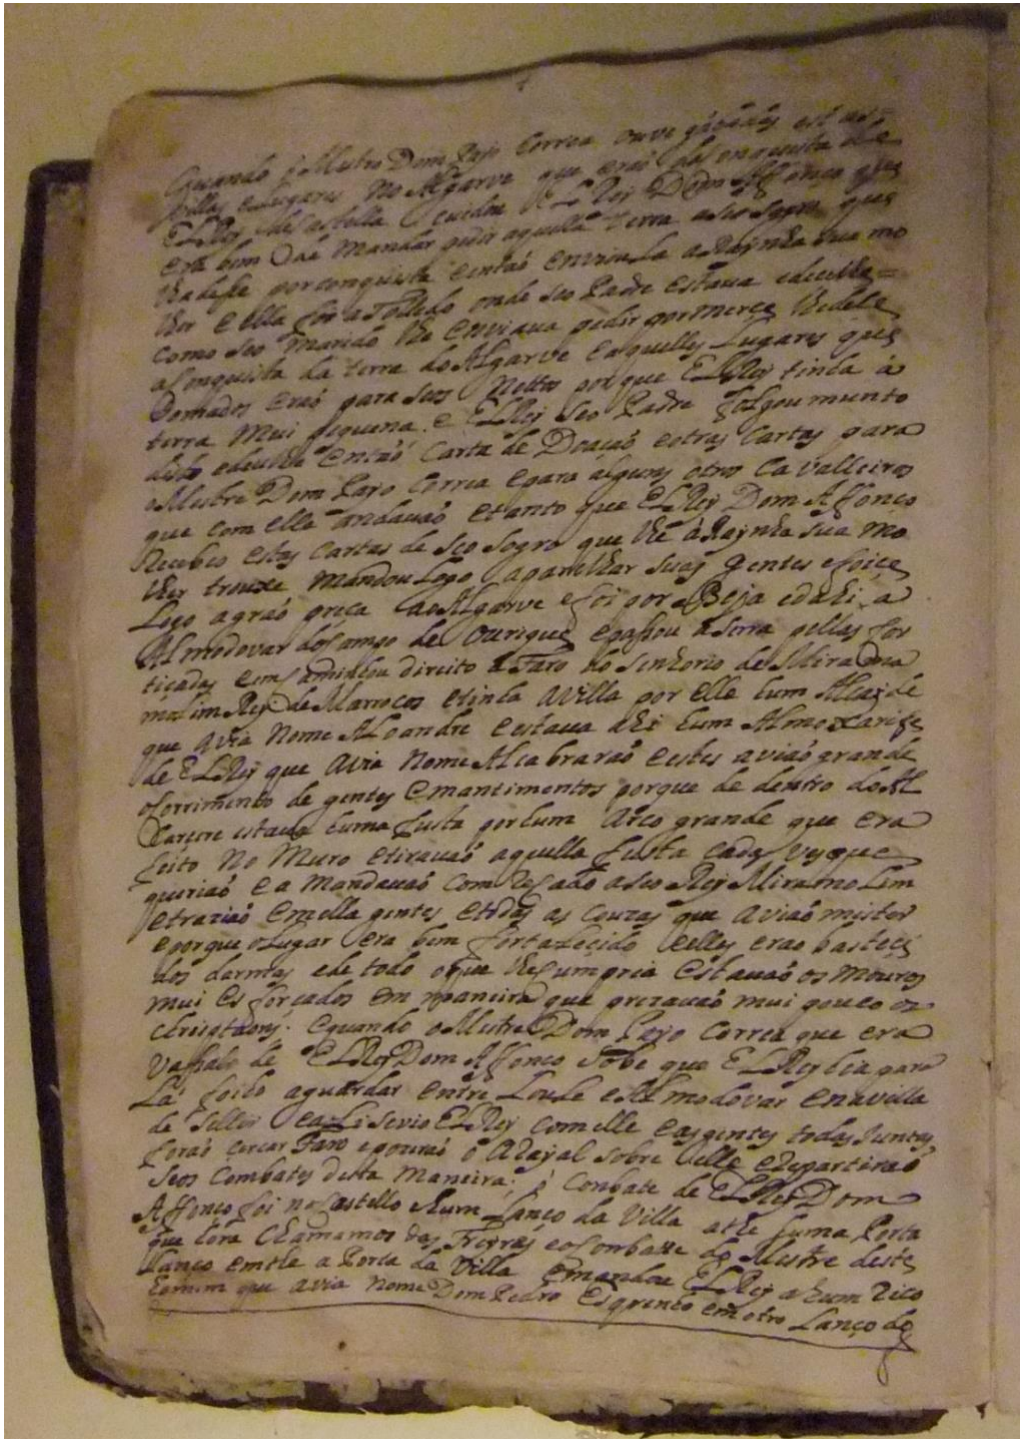 Quando o Mestre Dom Payo Correa ouve gãnadas estas
villas e Lugares no Algarve que eraõ da Conquista de
El Rey de Castella Cuidou El Rey Dom Affonço que
era bem de mandar pedir aquella terra a seo sogro que
lha desse por conquista e entaõ enviou la a Raynha sua mo
lher e ella foi a Tolledo onde seo Padre estava e decilhe =
como seo marido lhe enviava pedir por merce lhe dese
a Conquista da terra do Algarve e aquelles Lugares que
tomados eraõ para seos Nettos porque El Rey tinha a
terra mui pequena. e El Rey seo Padre folgou muuto
disto e deulhe entaõ Carta de Doacaõ e otras Cartas para
o Mestre Dom Payo Correa e para alguns otros Cavalleiros
que com elle andavaõ e tanto que El Rey Dom Affonço
Recebeo estas cartas de seo sogro que lhe a Raynha sua mo
lher trouxe mandou Logo aparelhar suas gentes e foice
Logo a graõ preça ao Algarve e foi por Beja e dahi a
Almodovar do Campo de Ourique e passou a serra pellas Cor
ticadas e em Caminhou direito a Faro do senhorio de Miramo
molim Rey de Marrocos e tinha a villa por elle hum Alcaide
que avia nome Aloandre e estava ahi hum Almoxarife
de El Rey que avia nome Alcabraraõ e estes aviaõ grande
oforrimento de gentes e mantimentos porque de dentro do Al
carçere estava huma fusta por hum Arco grande que era
feito no Muro e tiravaõ aquella fusta cada ves que
queriaõ e a mandavaõ com Recado a seo Rey Miramolim
e traziaõ em ella gentes e todas as couzas que aviaõ mister
e porque o Lugar era bem fortalecido e elles eraõ basteçi
dos darmas e de todo o que lhe cumpria estavaõ os mouros
mui esforçados em maneira que prezavaõ mui pouco os
christaons. e quando o Mestre Dom Payo Correa que era
vassalo de El Rey Dom Affonço sobe que El Rey hia para
La foi ho aguardar entre Loule e Almodovar em a villa
de Sellir e ali se vio El Rey com elle e as gentes todas juntas
foraõ cercar Faro e pouzaõ o Arayal sobre elle e Repartiraõ
seos combates desta maneira; o Conbate de El Rey Dom
Affonço foi no Castello e hum Lanço da villa athe huma Porta
que hora chamamos das Freyras e o Conbatte do Mestre deste
Lanço emthe a Porta da Villa e mandou El Rey a hum Rico
homem que avia nome Dom Pedro Esqrenho em otro Lanço do